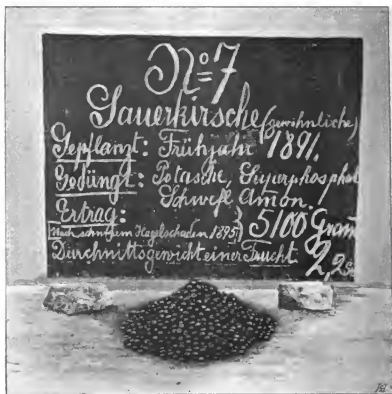 No 7
Sauerkirsche (gewöhnliche)
Gepflanzt: Frühjahr 1891.
Gedüngt: Potasche Superphosphat
Schwefls. Amon.
Ertrag: } 5100 Gram
Nach schwerem Hagelschaden 1895
Durchnittsgewicht einer Frucht 2,2